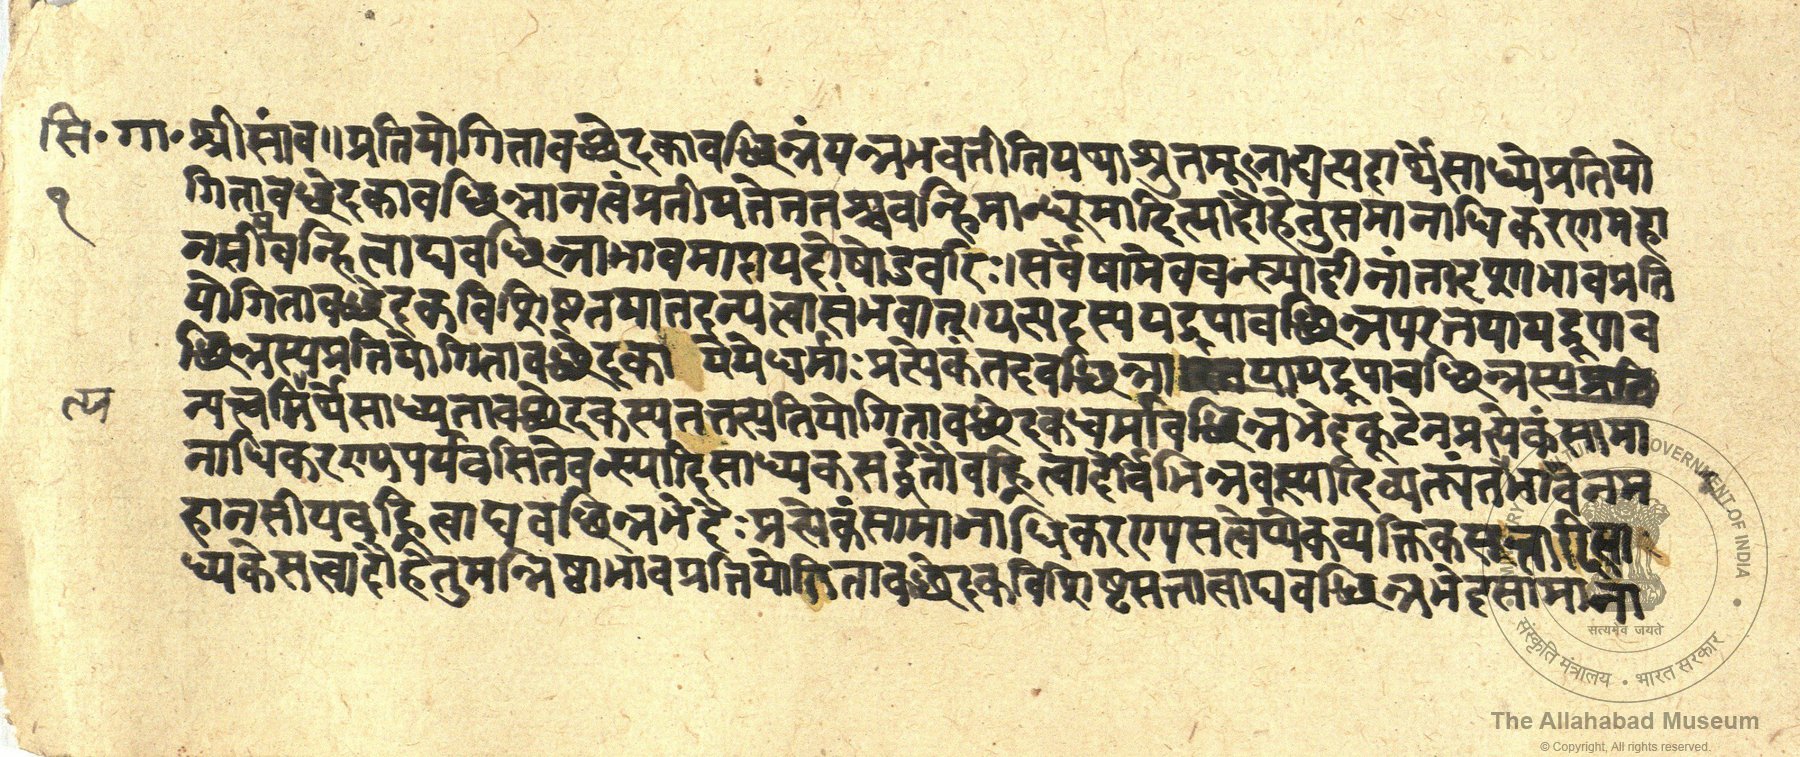 सि॰ गा॰ श्रीसांव॥ प्रतियोगितावच्छेदकावच्छिन्नं यन्न भवतीति यथाश्रुतमूलाद्यस्पदार्थे साध्ये प्रतियो
१ गितावच्छेदकावच्छिन्नानत्वं प्रतीयते ततश्च वन्हिमान्धूमादित्यादौ हेतुसमानाधिकरणमहा
नसीयवन्हित्वाद्यवच्छिन्नाभावमादाय दोषोऽवारि॥ सर्वेषामेव वन्ह्यादीनां तादृशाभावप्रति
योगितावच्छेदकविशिष्टतया तदन्यत्वासंभवात्। यत्पदस्य यद्रूपावच्छिन्नपरतया यद्रूपाव
च्छिन्नस्य प्रतियोगितावच्छेदका ये ये धर्माः प्रत्येकं तदवच्छिन्ना यद्रूपावच्छिन्नस्य प्रति
त्य न्यत्त्वमित्यर्थे साध्यतावच्छेदकस्य तत्तत्प्रतियोगितावच्छेदकधर्मावच्छिन्नभेदकूटेन प्रत्येकं सामा
नाधिकरण्यपर्यवसितेवन्ह्यादिसाध्यकसद्धेतौ वह्नित्वादेर्विभिन्नवह्न्यादिव्यक्त्यंतर्भावेन म
हानसीयवह्नित्वाद्यवच्छिन्नभेदैः प्रत्येकं सामानाधिकरण्यसत्वेप्येकव्यक्तिक सा
ध्यके सत्त्वादौ हेतुमन्निष्ठाभावप्रतियोगितावच्छेदकविशिष्टसत्तात्वाद्यवच्छिन्नभेदसामाना
सत्यमेव जयते
संस्कृति मंत्रालय • भारत सरकार
GOVERNMENT OF INDIA
The Allahabad Museum
© Copyright, All rights reserved.